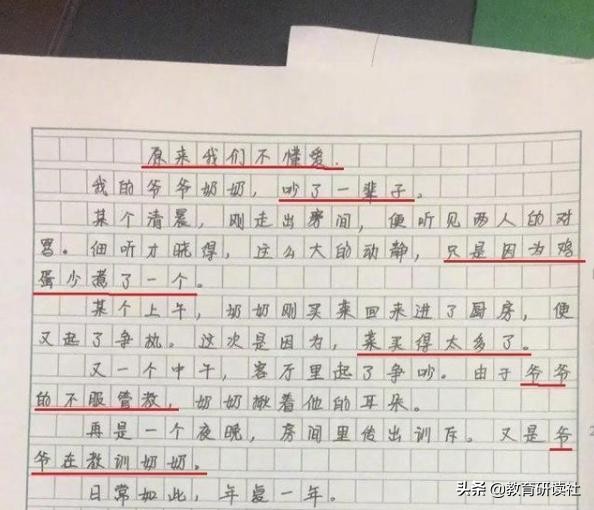 原来我们不懂爱.
我的爷爷奶奶，吵了一辈子。
某个清晨，刚走出房间，便听见两人的对
骂。细听才晓得，这么大的动静，只是因为鸡
蛋少煮了一个。
某个上午，奶奶刚买菜回来进了厨房，便
又起了争执。这次是因为，菜买得太多了。
又一个中午，客厅里起了争吵。由于爷爷
的不服管教，奶奶揪着他的耳朵。
再是一个夜晚，房间里传出训斥。又是爷
爷在教训奶奶。
日常如此，年复一年。
头条 @教育研读社